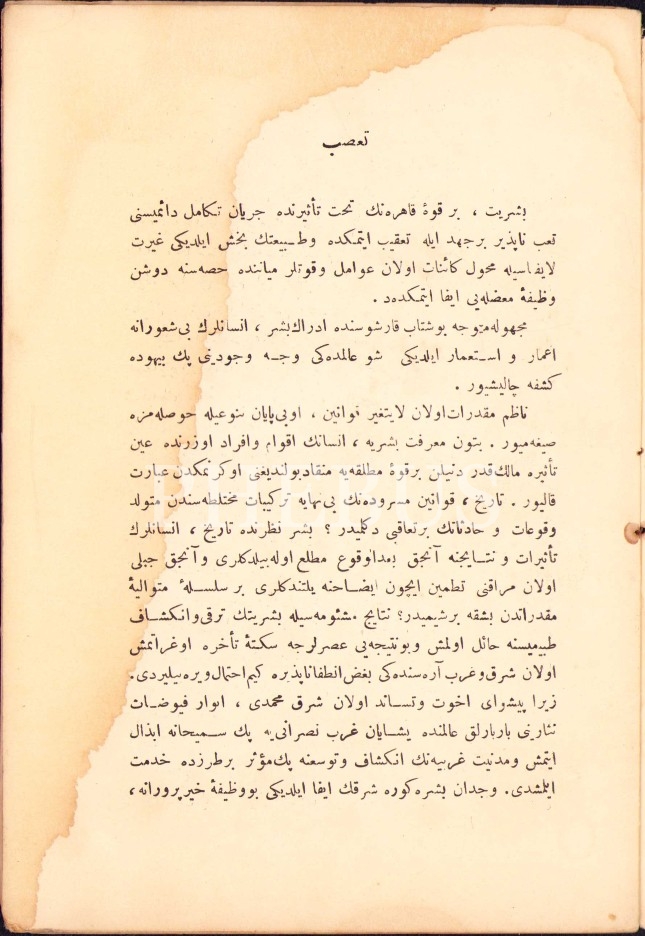 تعصب
بشریت ، بر قوهٔ قاهره‌نك تحت تأثیرنده جریان تكامل دائمیسنی
تعب ناپذیر برجهد ایله تعقیب ایتمكده وطبیعتك بخش ایلدیكی غیرت
لایفناسیله محول كائنات اولان عوامل وقوتلر میاننده حصه‌سنه دوشن
وظیفهٔ معضله‌یی ایفا ایتمكده‌د .
مجهوله متوجه بوشتاب قارشوسنده ادراك بشر ، انسانلرك بی‌شعورانه
اعمار و استعمار ایلدیكی شو عالمده‌كی وجه وجودینی پك بیهوده
كشفه چالیشیور .
ناظم مقدرات اولان لایتغیر قوانین ، اوبی‌پایان تنوعیله حوصله‌مزه
صیغه‌میور . بتون معرفت بشریه ، انسانك اقوام وافراد اوزرنده عین
تأثیره مالك قدر دنیلن برقوهٔ مطلقه‌یه منقاد بولندیغنی اوكرنمكدن عبارت
قالیور . تاریخ ، قوانین مسروده‌نك بی‌نهایه تركیبات مختلطه‌سندن متولد
وقوعات و حادثاتك برتعاقبی دكلمیدر ؟ بشر نظرنده تاریخ ، انسانلرك
تأثیرات و نتایجنه آنجق بعدالوقوع مطلع اوله‌بیلدكلری وآنجق جبلی
اولان مراقنی تطمین ایچون ایضاحنه یلتندكلری بر سلسلهٔ متوالیهٔ
مقدراتدن بشقه برشیمیدر؟ نتایج مشئومه‌سیله بشریتك ترقی وانكشاف
طبیعیسنه حائل اولمش وبونتیجه‌یی عصرلرجه سكتهٔ تأخره اوغراتمش
اولان شرق وغرب آره‌سنده‌كی بغض انطفاناپذیره كیم احتمال ویره‌بیلیردی.
زیرا پیشوای اخوت وتساند اولان شرق محمدی ، انوار فیوضات
نثارینی باربارلق عالمنده یشایان غرب نصرانی‌یه پك سمیحانه ابذال
ایتمش ومدنیت غربیه‌نك انكشاف وتوسعنه پك مؤثر برطرزده خدمت
ایلمشدی. وجدان بشره كوره شرقك ایفا ایلدیكی بووظیفهٔ خیرپرورانه،